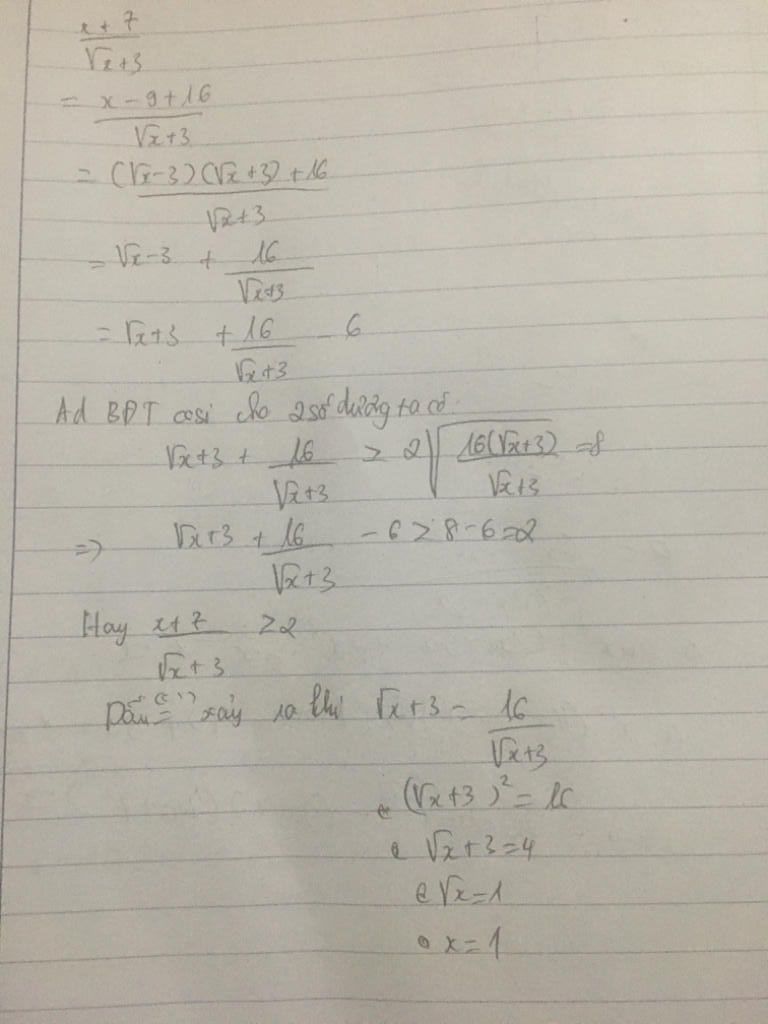 x + 7 / √x + 3
= x - 9 + 16 / √x + 3
= (√x - 3)(√x + 3) + 16 / √x + 3
= √x - 3 + 16 / √x + 3
= √x + 3 + 16 / √x + 3 - 6
Ad BĐT cosi cho 2 số dương ta có:
√x + 3 + 16 / √x + 3 ≥ 2√(16(√x + 3) / √x + 3) = 8
=> √x + 3 + 16 / √x + 3 - 6 ≥ 8 - 6 = 2
Hay x + 7 / √x + 3 ≥ 2
Dấu "=" xảy ra khi √x + 3 = 16 / √x + 3
(√x + 3)² = 16
√x + 3 = 4
√x = 1
x = 1